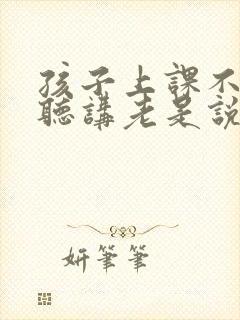 孩子上課不
聽講老是說
妍筆筆